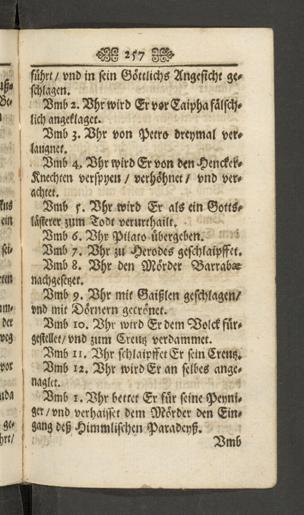 257
führt / vnd in sein Göttlichs Angesicht ge-
schlagen.
Vmb 2. Vhr wird Er vor Caipha fälsch-
lich angeklaget.
Vmb 3. Vhr von Petro dreymal ver-
laugnet.
Vmb 4. Vhr wird Er von den Hencker-
Knechten verspyen / verhöhnet / vnd ver-
achtet.
Vmb 5. Vhr wird Er als ein Gotts-
lästerer zum Todt verurthailt.
Vmb 6. Vhr Pilato übergeben.
Vmb 7. Vhr zu Herodes geschlaipffet.
Vmb 8. Vhr den Mörder Barrabæ
nachgesetzet.
Vmb 9. Vhr mit Gaißlen geschlagen /
vnd mit Dörnern gecrönet.
Vmb 10. Vhr wird Er dem Volck für-
gestellet / vnd zum Creutz verdammet.
Vmb 11. Vhr schlaipffet Er sein Creutz.
Vmb 12. Vhr wird Er an selbes ange-
naglet.
Vmb 1. Vhr bettet Er für seine Peyni-
ger / vnd verhaisset dem Mörder den Ein-
gang deß Himmlischen Paradeyß.
Vmb